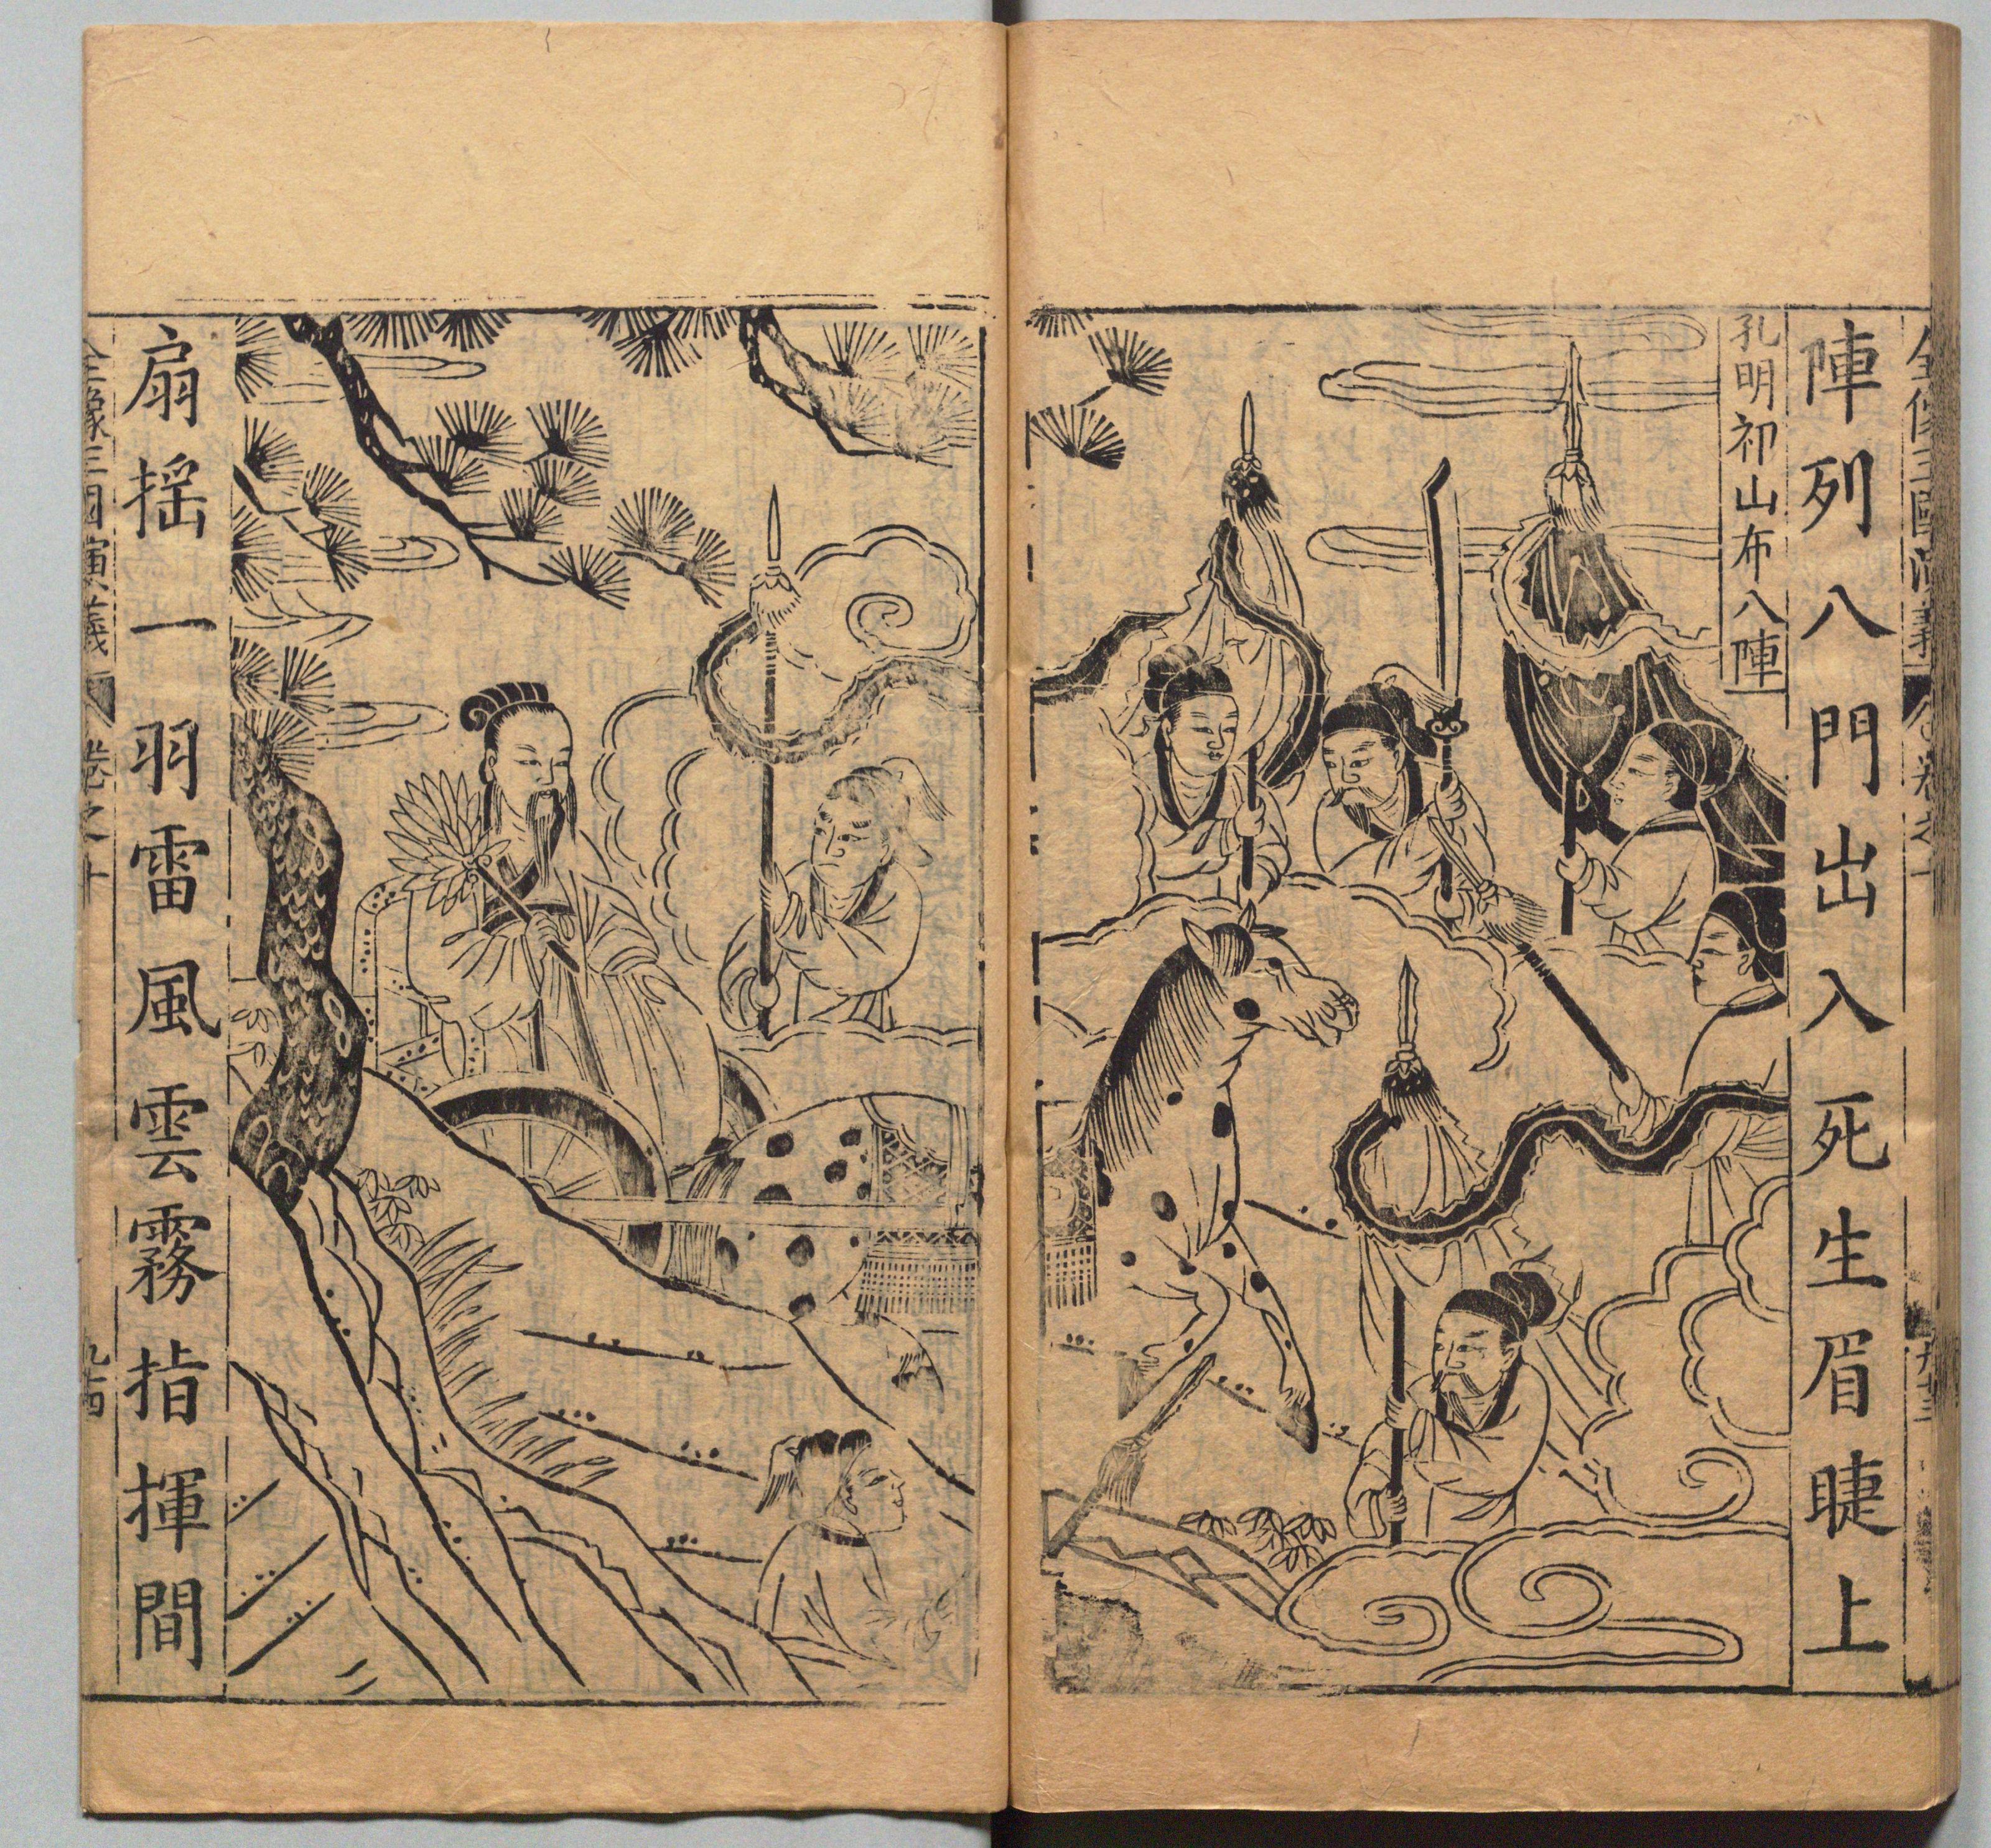 陣列八門出入死生眉睫上
孔明祁山布八陣
扇揺一羽雷風雲霧指揮間
全像三國演義
卷之十
九十三
全像三國演義
卷之十
九十四